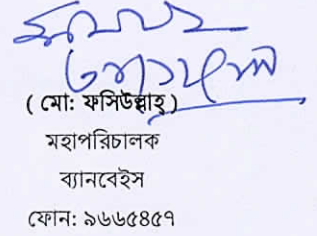 ( মো: ফসিউল্লাহ্ )
মহাপরিচালক
ব্যানবেইস
ফোন: ৯৬৬৫৪৫৭